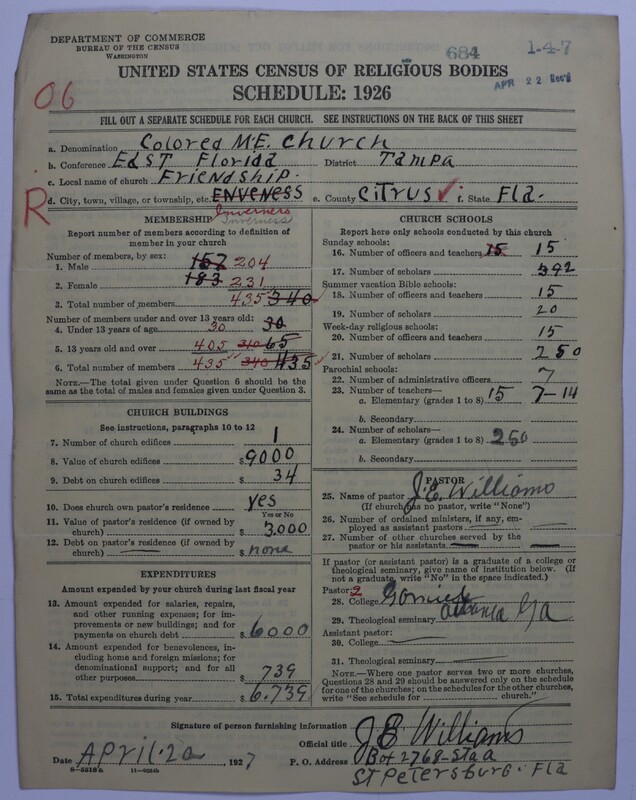 DEPARTMENT OF COMMERCE
BUREAU OF THE CENSUS
WASHINGTON
684
1-4-7
APR 22
UNITED STATES CENSUS OF RELIGIOUS BODIES
SCHEDULE: 1926
06
FILL OUT A SEPARATE SCHEDULE FOR EACH CHURCH. SEE INSTRUCTIONS ON THE BACK OF THIS SHEET
a. Denomination Colored M.E. Church
b. Conference East Florida District Tampa
c. Local name of church Friendship
R
d. City, town, village, or township, etc. ENVENESS e. County Citrus f. State Fla.
Inverness
MEMBERSHIP
Report number of members according to definition of
member in your church
Number of members, by sex:
1. Male 157 204
2. Female 183 231
3. Total number of members 435 340
Number of members under and over 13 years old:
4. Under 13 years of age 30 30
5. 13 years old and over 405 340 65
6. Total number of members 435 340 435
NOTE.—The total given under Question 6 should be
the same as the total of males and females given under Question 3.
CHURCH BUILDINGS
See instructions, paragraphs 10 to 12
7. Number of church edifices 1
8. Value of church edifices $9000
9. Debt on church edifices $ 34
10. Does church own pastor's residence yes
Yes or No
11. Value of pastor's residence (if owned by
church) $3.000
12. Debt on pastor's residence (if owned by
church) $ none
EXPENDITURES
Amount expended by your church during last fiscal year
13. Amount expended for salaries, repairs,
and other running expenses; for im-
provements or new buildings; and for
payments on church debt $6000
14. Amount expended for benevolences, in-
cluding home and foreign missions; for
denominational support; and for all
other purposes $ 739
15. Total expenditures during year $6.739
CHURCH SCHOOLS
Report here only schools conducted by this church
Sunday schools:
16. Number of officers and teachers 15 15
17. Number of scholars 392
Summer vacation Bible schools:
18. Number of officers and teachers 15
19. Number of scholars 20
Week-day religious schools:
20. Number of officers and teachers 15
21. Number of scholars 250
Parochial schools:
22. Number of administrative officers 7
23. Number of teachers—
a. Elementary (grades 1 to 8) 15 7-14
b. Secondary
24. Number of scholars—
a. Elementary (grades 1 to 8) 250
b. Secondary
PASTOR
25. Name of pastor J.E. Williams
(If church has no pastor, write "None")
26. Number of ordained ministers, if any, em-
ployed as assistant pastors
27. Number of other churches served by the
pastor or his assistants
If pastor (or assistant pastor) is a graduate of a college or
theological seminary, give name of institution below. (If
not a graduate, write "No" in the space indicated.)
Pastor: 2
28. College
29. Theological seminary Atlanta Ga
Assistant pastor:
30. College
31. Theological seminary
NOTE.—Where one pastor serves two or more churches,
Questions 28 and 29 should be answered only on the schedule
for one of the churches; on the schedules for the other churches,
write "See schedule for church."
Signature of person furnishing information J E Williams
Official title
Date April. 20 1927 P. O. Address Box 2768-Sta a
8-5518 b 11-9024b
St Petersburg. Fla